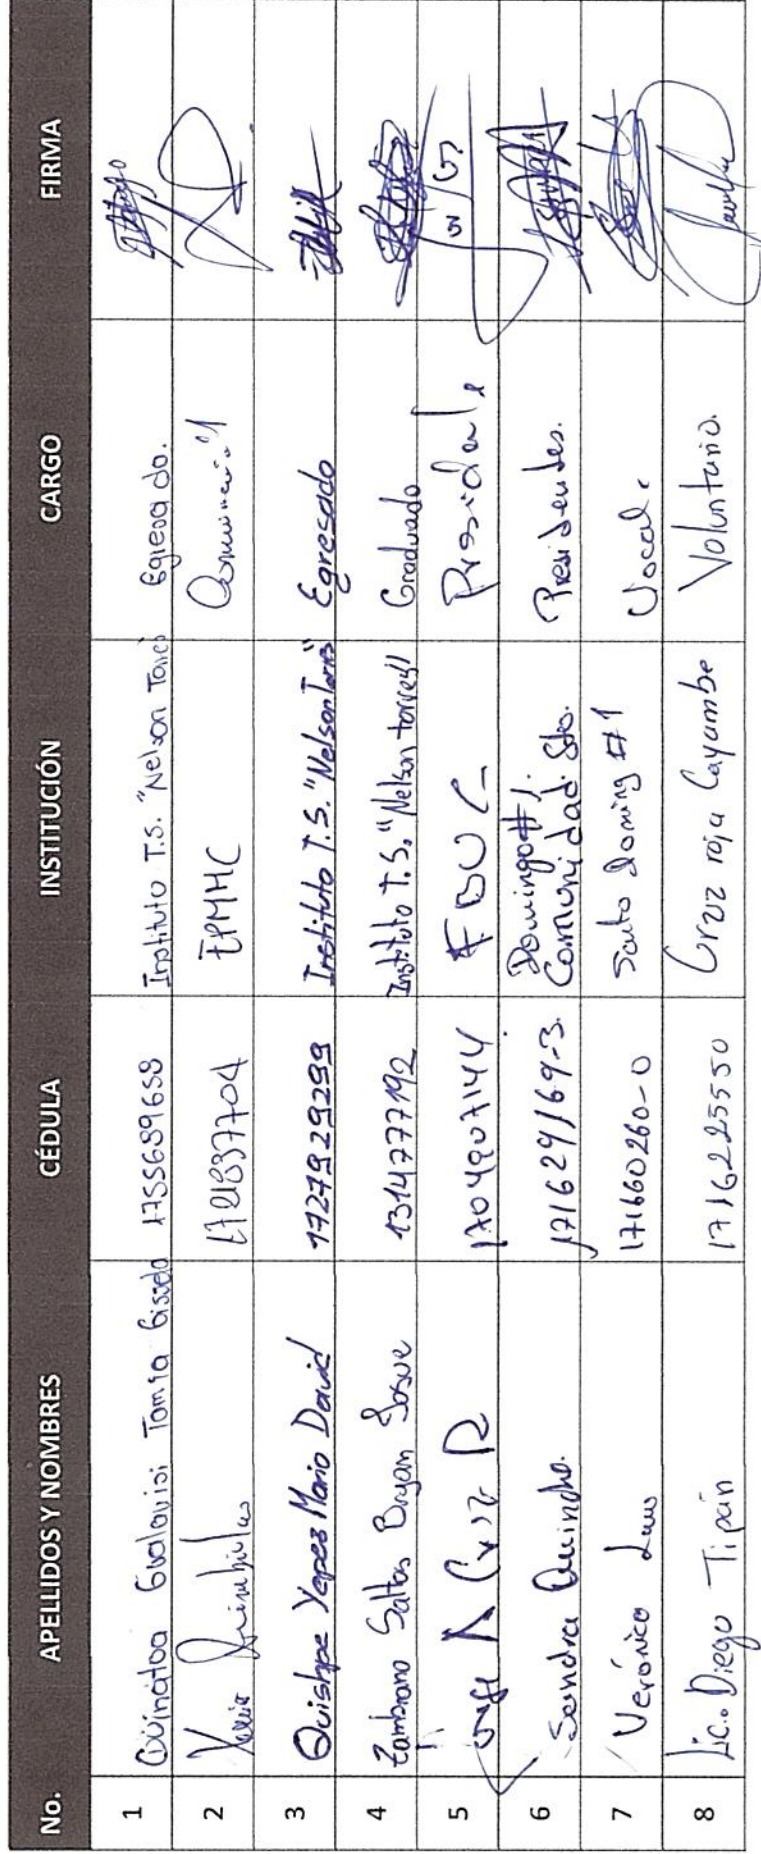 No. APELLIDOS Y NOMBRES CÉDULA INSTITUCIÓN CARGO FIRMA
1 Quinatoa Gualavisi Tamia Gissela 1755689658 Instituto T.S. "Nelson Torres Egresado.
2 EPMHC
3 Quishpe Yepez Mario David 1727929299 Instituto T.S. "Nelson Torres" Egresado
4 Zambrano Saltos Bryan Josue 1314777192 Instituto T.S. "Nelson torres" Graduado
5 1704207144 Presidente
6 Sandra Quincho. 171629169-3. Domingo #1.
Comunidad. Sto. Presidentes.
7 Verónica 171660260-0 Santo Doming #1 Vocal.
8 Lic. Diego Tipán 1716225550 Cruz roja Cayambe Voluntario.